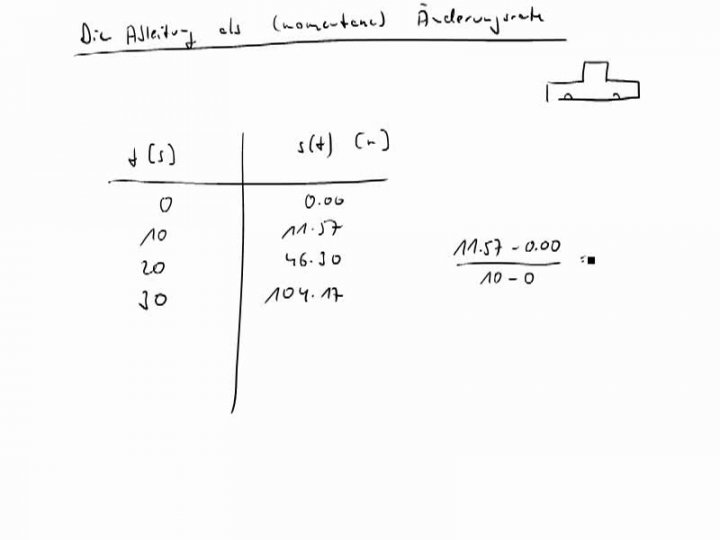 Die Ableitung als (momentane) Änderungsrate
t [s] s(t) [m]
0 0.00
10 11.57
20 46.30
30 104.17
11.57 - 0.00
10 - 0
=